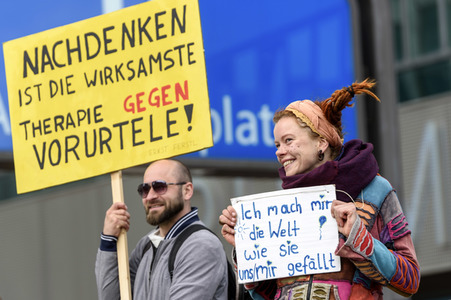 NACHDENKEN
IST DIE WIRKSAMSTE
THERAPIE GEGEN
VORURTELE!
platz
Ich mach mir
die Welt
wie sie
uns/mir gefällt